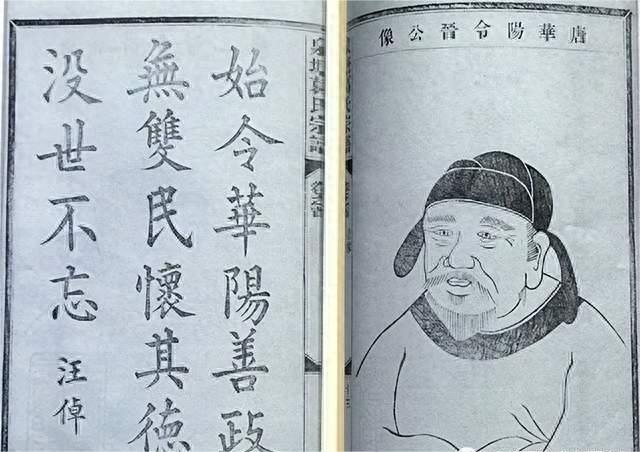 唐華陽令晉公像
始令華陽善政
無雙民懷其德
没世不忘
汪倬
氏宗譜